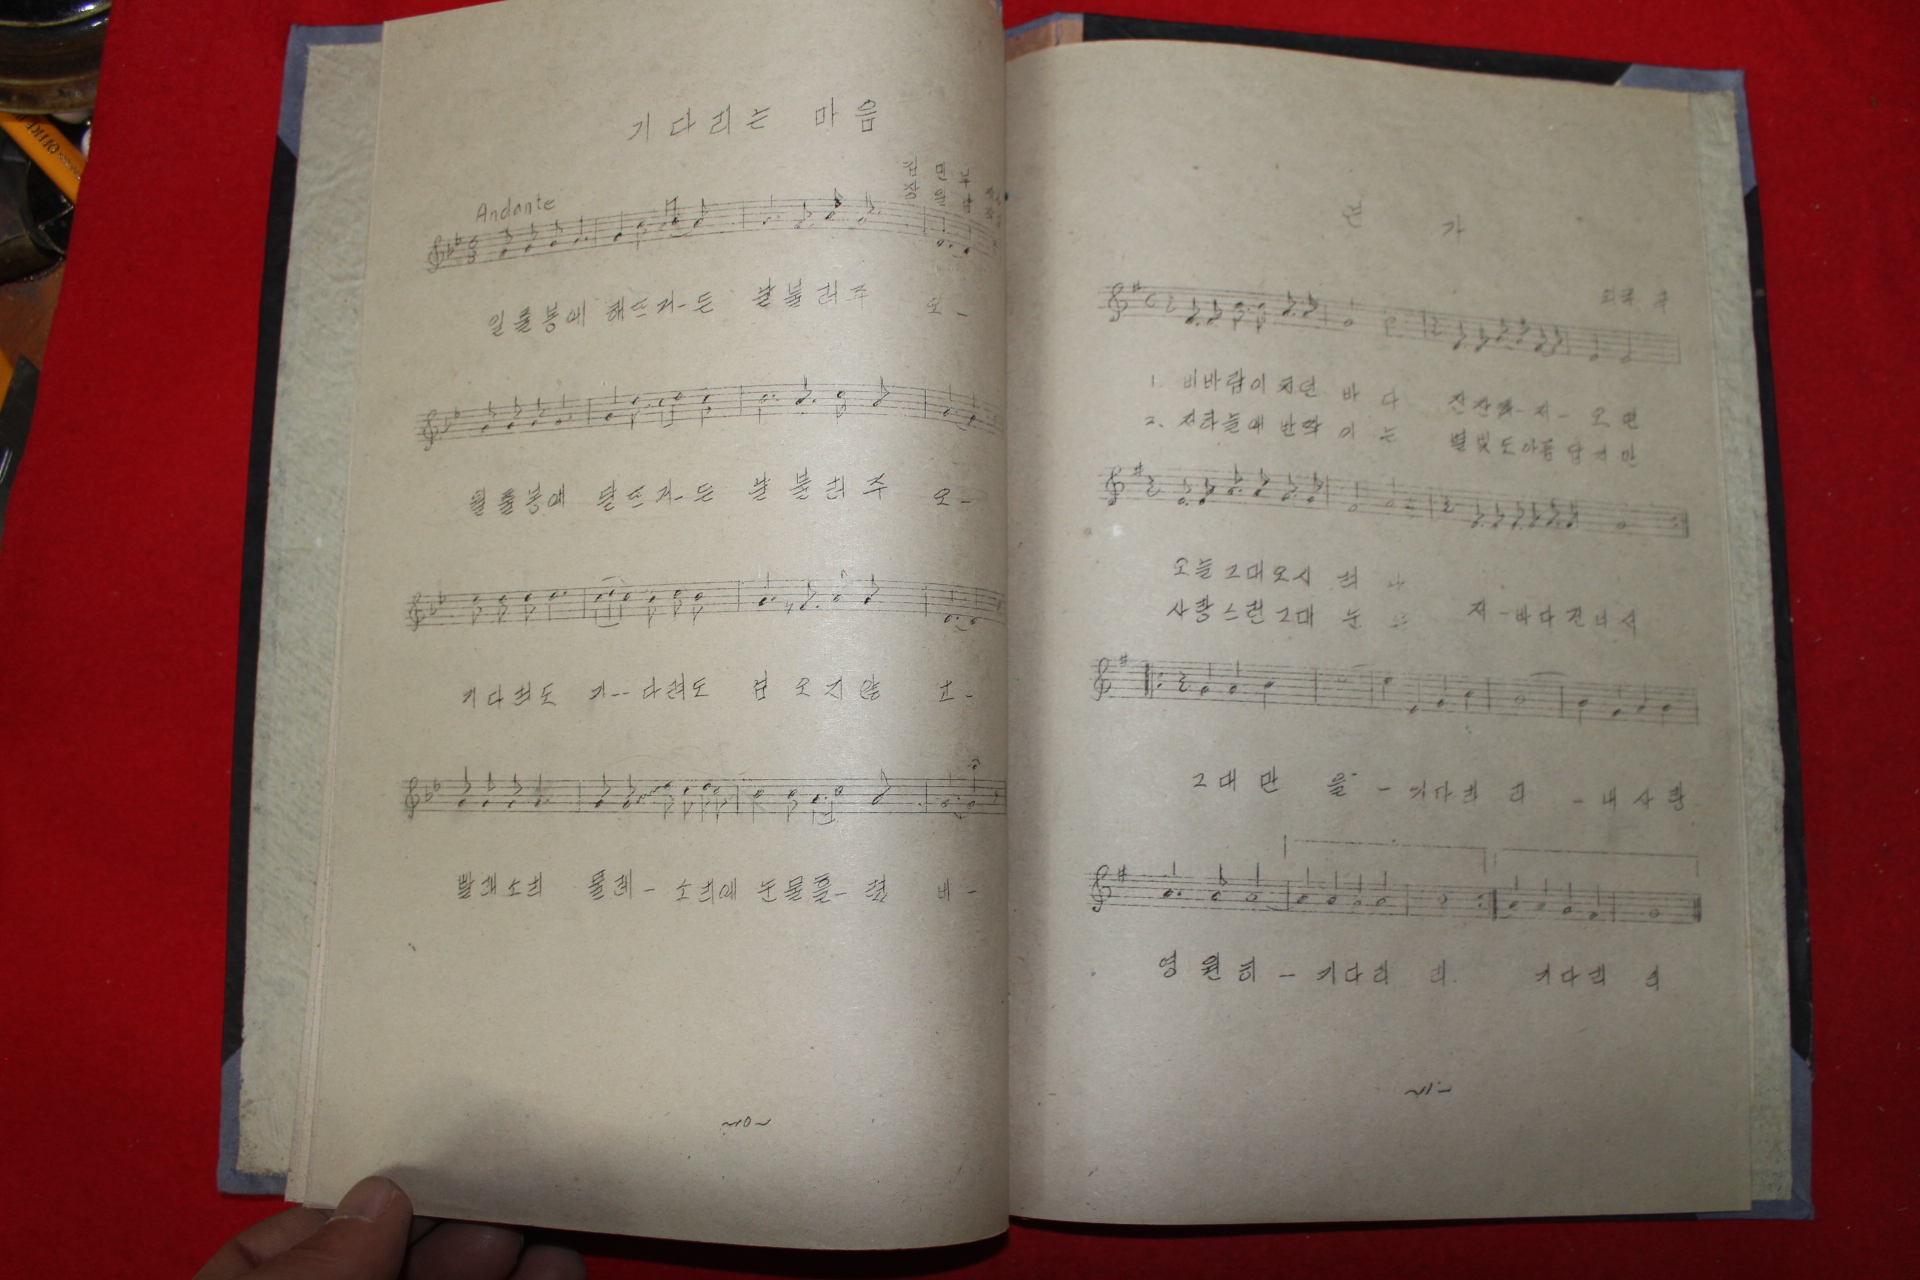 기다리는 마음
김민부
장일남
Andante
일출봉에 해뜨거-든 날불러주 오-
월출봉에 달뜨거-든 날불러주 오-
기다려도 기--다려도 님오지않 고-
빨래소리 물레-소리에 눈물흘-렸 네-
~10~
연가
외국 곡
1. 비바람이 치던 바다 잔잔해-져-오면
2. 저하늘에 반짝이는 별빛도아름답지만
오늘그대오시 려나
사랑스런그대 눈은 저-바다건너서
그대만 을-기다리 리-내사랑
영원히-기다리 리 기다리 리
~11~